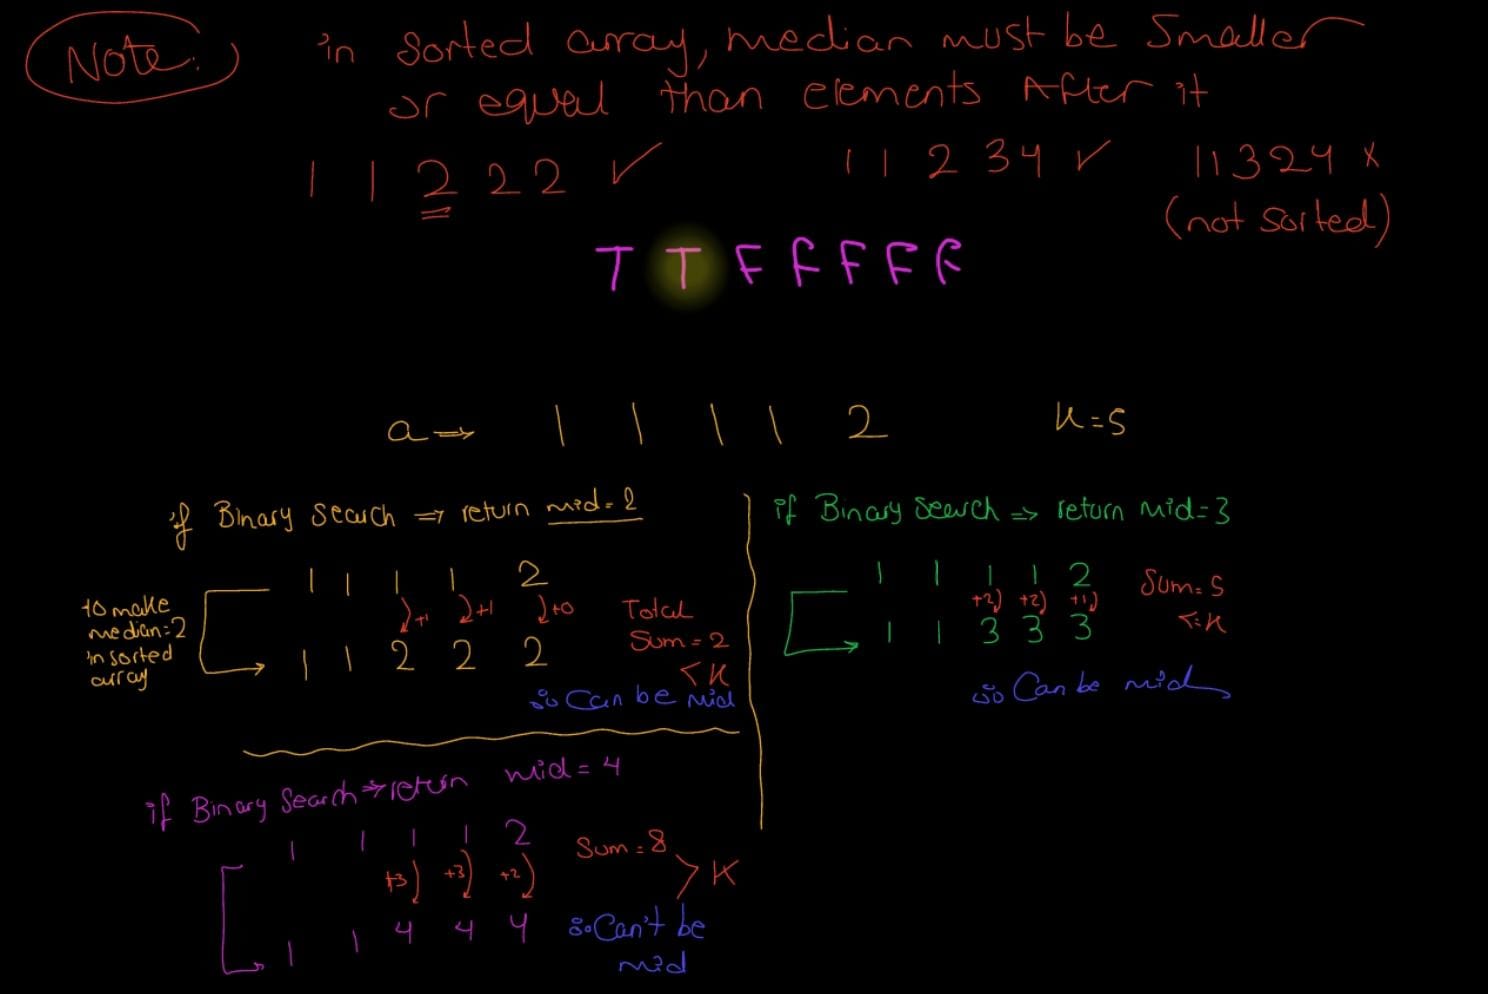 Note:
in Sorted array, median must be Smaller
or equal than elements After it
1 1 2 2 2 ✓
1 1 2 3 4 ✓
1 1 3 2 4 x
(not sorted)
T T F F F F F
a ⇒ 1 1 1 1 2 K=5
if Binary Search ⇒ return mid=2
1 1 1 1 2
+1 +1 +0
1 1 2 2 2
to make
median=2
in sorted
array
Total
Sum=2
<K
∴ Can be mid
if Binary Search ⇒ return mid=3
1 1 1 1 2
+2 +2 +1
1 1 3 3 3
Sum=5
<=K
∴ Can be mid
if Binary Search ⇒ return mid=4
1 1 1 1 2
+3 +3 +2
1 1 4 4 4
Sum=8
> K
∴ Can't be
mid